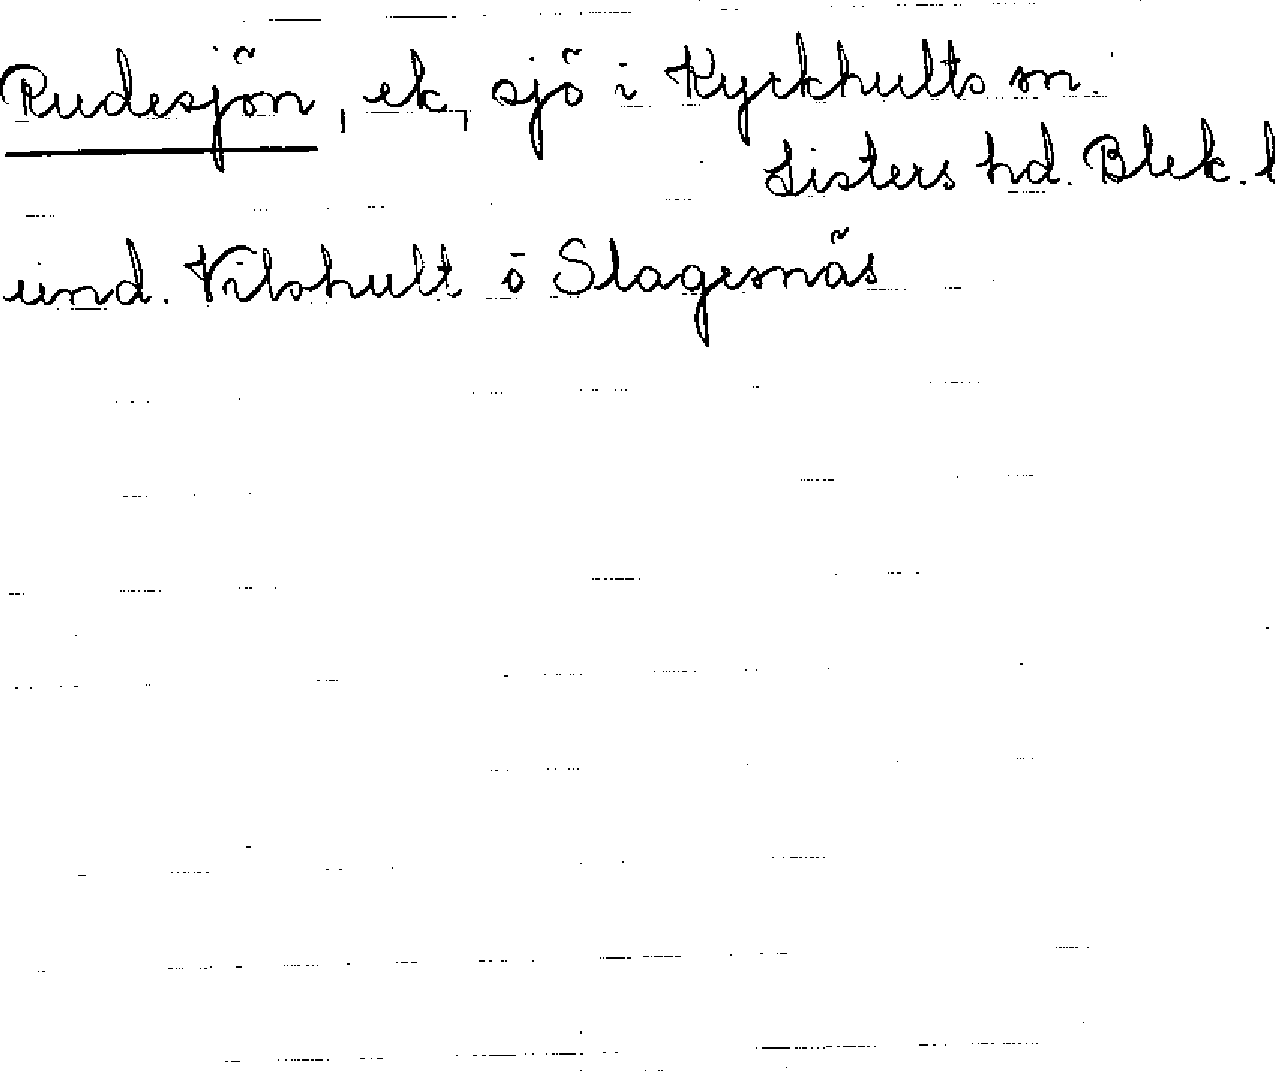 Rudesjön, ek, sjö i Kyrkhults sn.
Listers hd. Blek. l
und. Vilshult o Slagesnäs